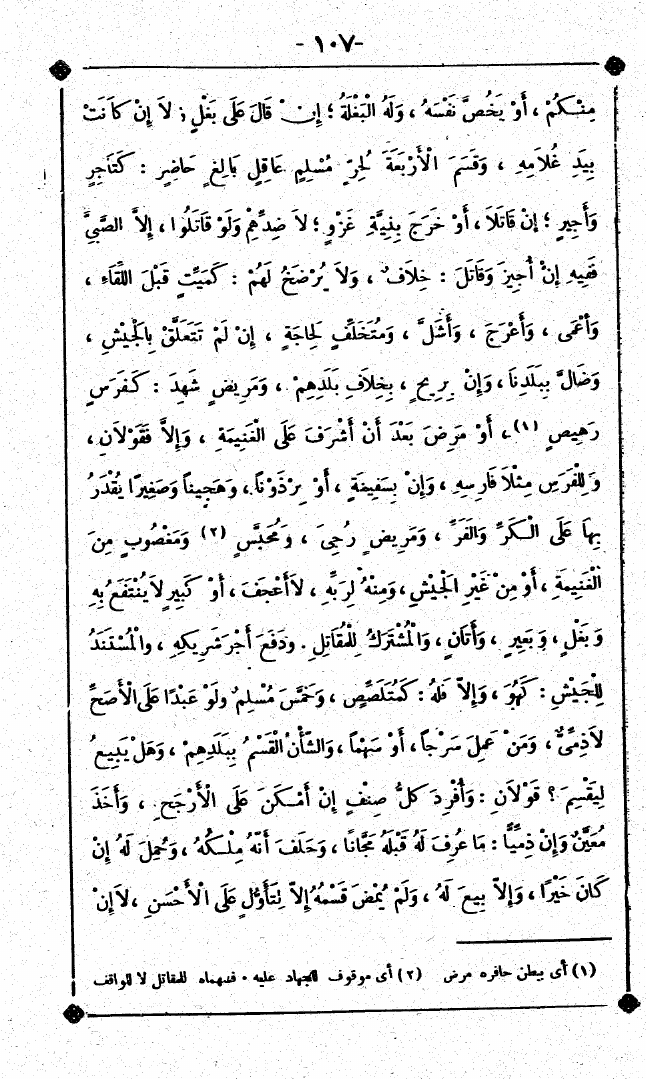 - ١٠٧ -
مِنْكُمْ ، أَوْ يَخُصَّ نَفْسَهُ ، وَلَهُ الْبَغْلَةُ ؛ إِنْ قَالَ عَلَى بَغْلٍ ؛ لاَ إِنْ كاَنَتْ
بِيَدِ غُلاَمِهِ ، وَقَسَمَ الْأَرْبَعَةَ لِحُرٍّ مُسْلِمٍ عَاقِلٍ بَالِغٍ حَاضِرٍ : كَتَاجِرٍ
وَأَجِيرٍ ؛ إِنْ قَاتَلاَ ، أَوْ خَرَجَ بِنِيَّةِ غَزْوٍ ؛ لاَ ضِدِّهِمْ وَلَوْ قَاتَلُوا ، إِلاَّ الصَّبِيَّ
فَفِيهِ إِنْ أُجِيزَ وَقَاتَلَ : خِلاَفٌ ، وَلاَ يُرْضَخُ لَهُمْ : كَمَيِّتٍ قَبْلَ اللِّقَاءِ ،
وَأَعْمَى ، وَأَعْرَجَ ، وَأَشَلَّ ، وَمُتَخَلِّفٍ لِحَاجَةٍ ، إِنْ لَمْ تَتَعَلَّقْ بِالْجَيْشِ ،
وَضَالَّ بِبَلَدِنَا ، وَإِنْ بِرِيحٍ ، بِخِلاَفِ بَلَدِهِمْ ، وَمَرِيضٍ شَهِدَ : كَفَرَسٍ
رَهِيصٍ (١) ، أَوْ مَرِضَ بَعْدَ أَنْ أَشْرَفَ عَلَى الْغَنِيمَةِ ، وَإِلاَّ فَقَوْلاَنِ ،
وَلِلْفَرَسِ مِثْلاَ فَارِسِهِ ، وَإِنْ بِسَفِينَةٍ ، أَوْ بِرْذَوْناً ، وَهَجِيناً وَصَغِيرًا يُقْدَرُ
بِهَا عَلَى الْكَرِّ وَالْفَرِّ ، وَمَرِيضٍ رُجِىَ ، وَمُحَبَّسٍ (٢) وَمَغْصُوبٍ مِنَ
الْغَنِيمَةِ ، أَوْ مِنْ غَيْرِ الْجَيْشِ ، وَمِنْهُ لِرَبِّهِ ، لاَ أَعْجَفَ ، أَوْ كَبِيرٍ لاَ يُنْتَفَعُ بِهِ
وَبَغْلٍ ، وَبَعِيرٍ ، وَأَتَانٍ ، وَالْمُشْتَرَكُ لِلْمُقَاتِلِ . وَدَفَعَ أَجْرَ شَرِيكِهِ ، وَالْمُسْتَنَدُ
لِلْجَيْشِ : كَهُوَ ، وَإِلاَّ فَلَهُ : كَمُتَلَصِّصٍ ، وَخَمَّسَ مُسْلِمٌ وَلَوْ عَبْدًا عَلَى الْأَصَحِّ
لاَ ذِمِّىٌّ ، وَمَنْ عَمِلَ سَرْجاً ، أَوْ سَهْماً ، وَالشَّأْنُ الْقَسْمُ بِبَلَدِهِمْ ، وَهَلْ يَبِيعُ
لِيَقْسِمَ ؟ قَوْلاَنِ : وَأُفْرِدَ كلُّ صِنْفٍ إِنْ أَمْكَنَ عَلَى الْأَرْجَحِ ، وَأَخَذَ
مُعَيَّنٌ وَإِنْ ذِمِّيًّا : مَا عُرِفَ لَهُ قَبْلَهُ مَجَّانًا ، وَحَلَفَ أَنَّهُ مِلْكُهُ ، وَحُمِلَ لَهُ إِنْ
كَانَ خَيْرًا ، وَإِلاَّ بِيعَ لَهُ ، وَلَمْ يُمْضَ قَسْمُهُ إِلاَّ لِتَأَوُّلٍ عَلَى الْأَحْسَنِ ، لاَ إِنْ
(١) أى ببطن حافره مرض (٢) أى موقوف للجهاد عليه . فسهماه للمقاتل لا للواقف